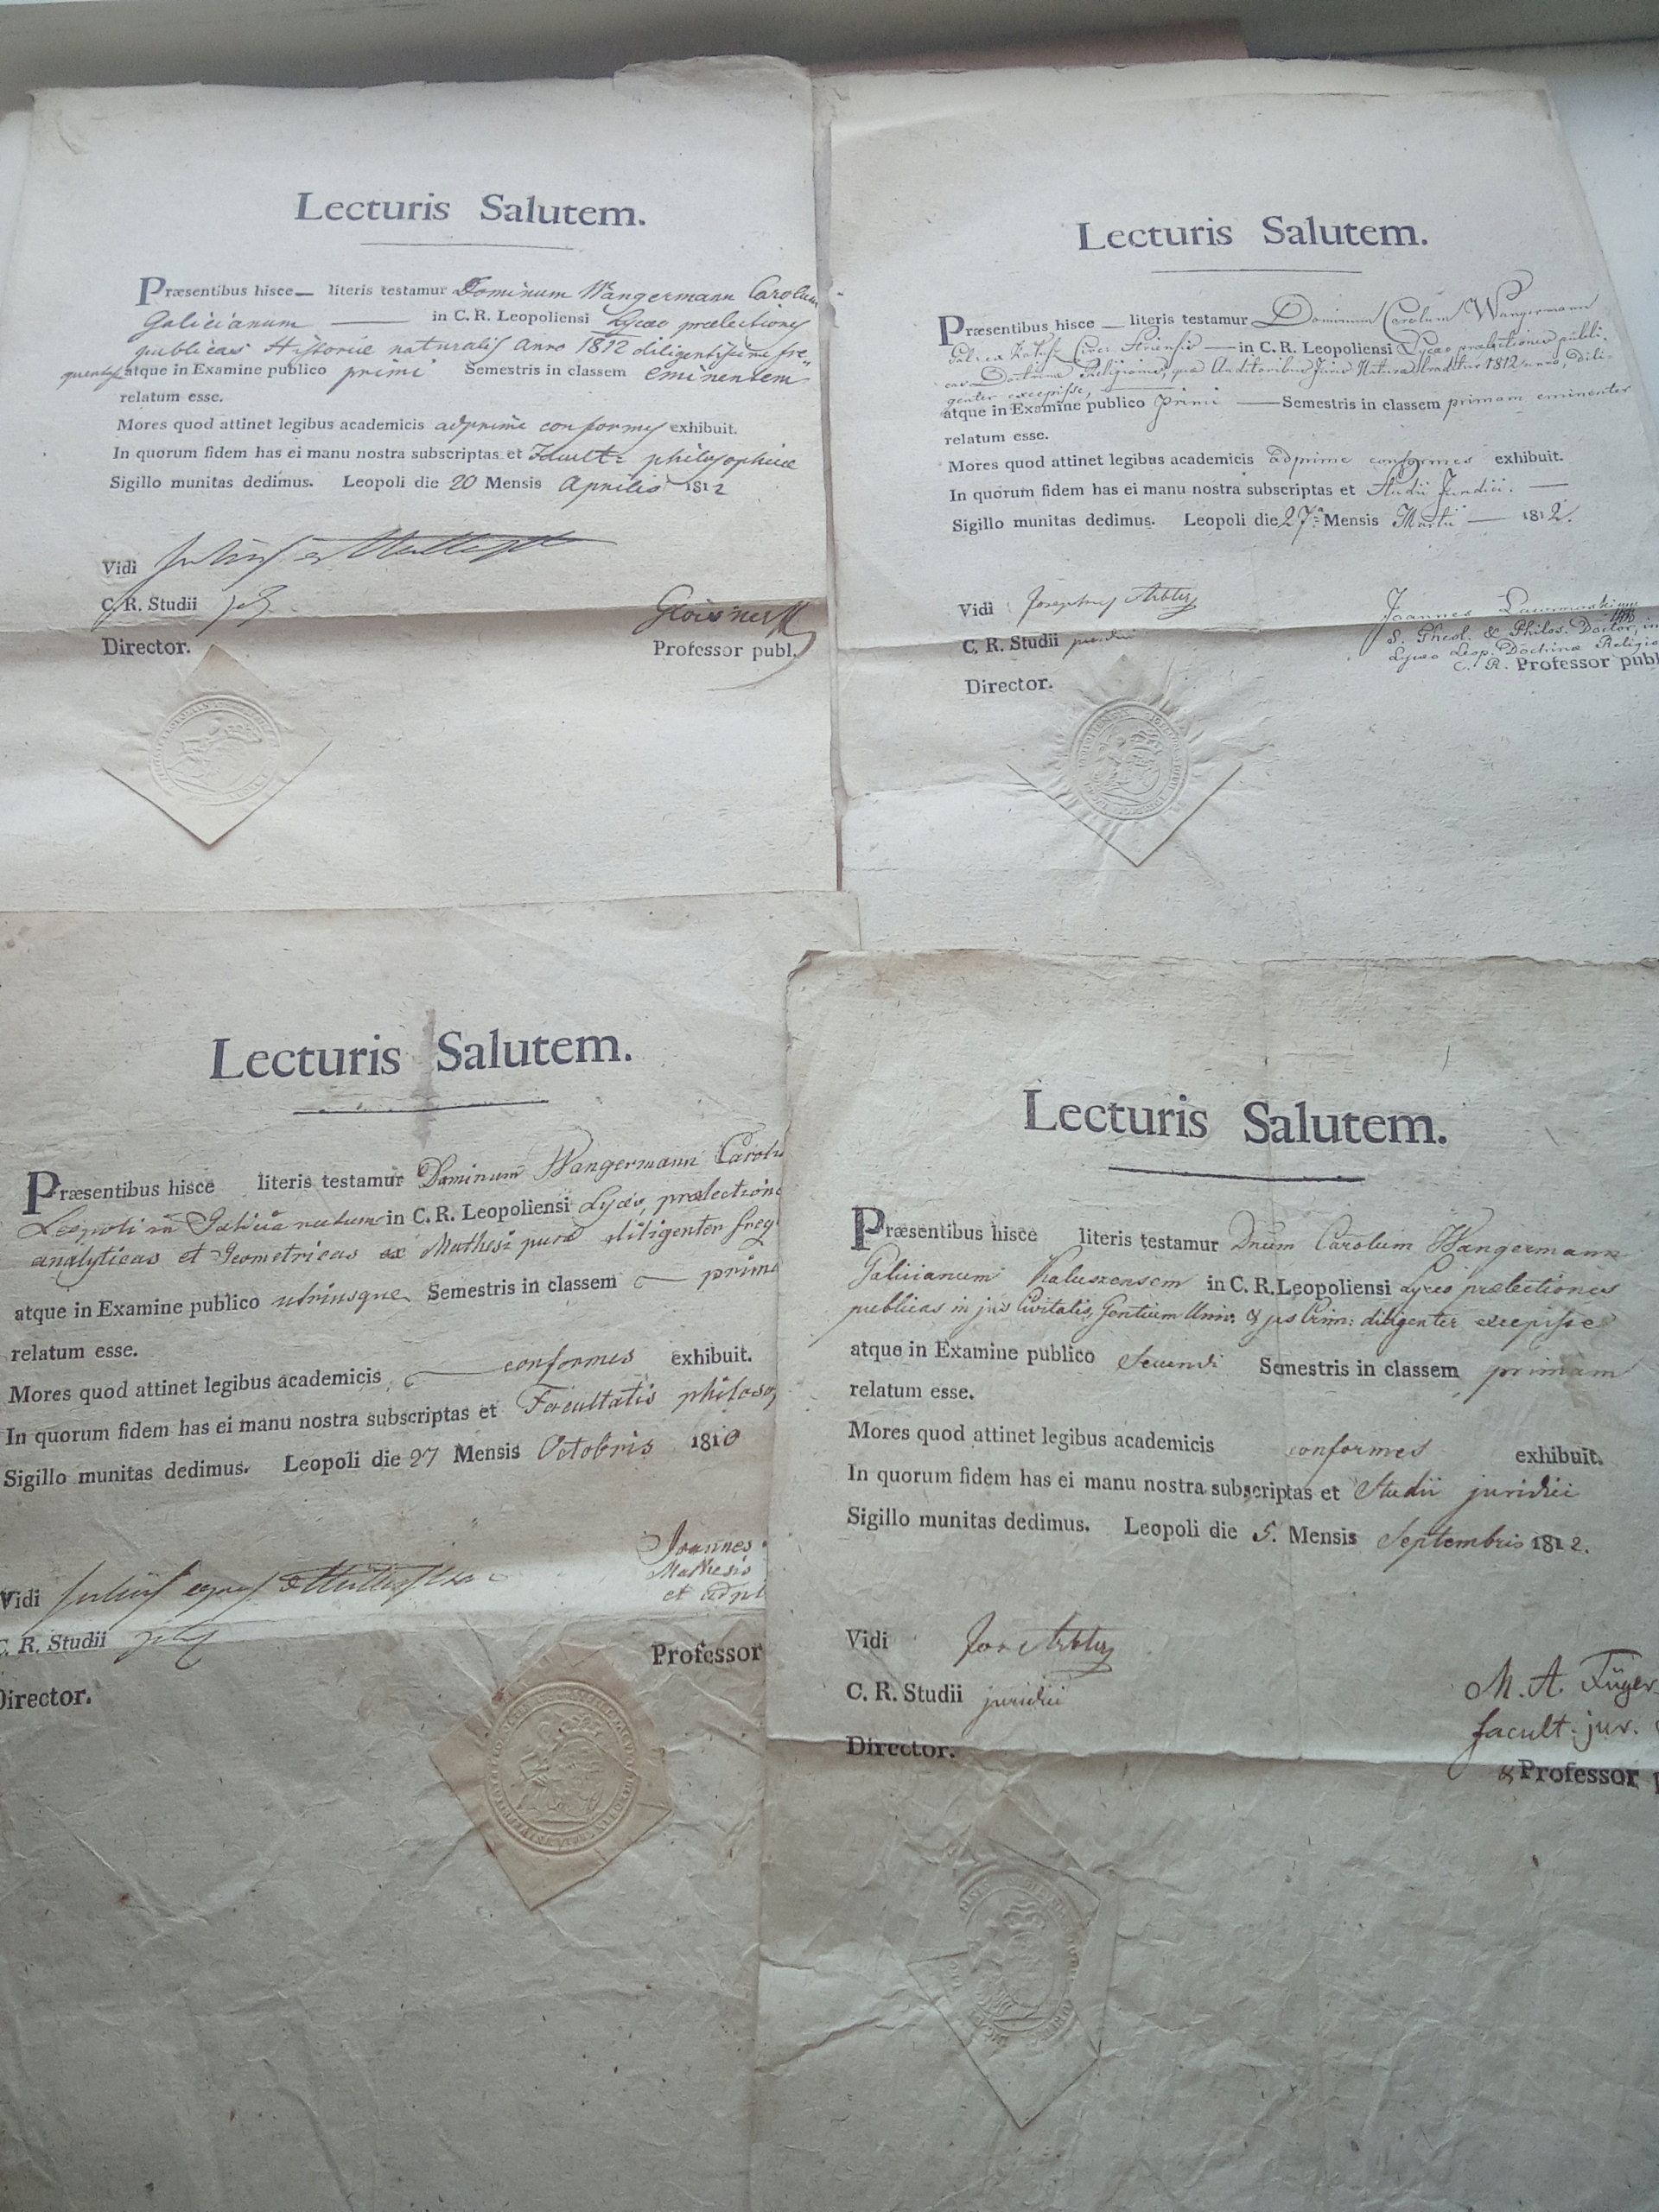 Lecturis Salutem.
Præsentibus hisce literis testamur Dominum Wangermann Carolum
Galicianum in C. R. Leopoliensi Lyceo prælectiones
publicas Historiæ naturalis Anno 1812 diligentissime fre
quentasse atque in Examine publico primi Semestris in classem eminentem
relatum esse.
Mores quod attinet legibus academicis adprime conformes exhibuit.
In quorum fidem has ei manu nostra subscriptas et Facult: philosophicæ
Sigillo munitas dedimus. Leopoli die 20 Mensis Aprilis 1812
Vidi
C. R. Studii
Director.
Professor publ.
Lecturis Salutem.
Præsentibus hisce literis testamur Dominum Carolum Wangermann
in C. R. Leopoliensi Lyceo prælectiones publi-
cas Doctrinæ Religionis, quæ Auditoribus Juris Naturæ traditur 1812 anno, dili-
genter excepisse,
atque in Examine publico primi Semestris in classem primam eminenter
relatum esse.
Mores quod attinet legibus academicis adprime conformes exhibuit.
In quorum fidem has ei manu nostra subscriptas et Studii Juridici.
Sigillo munitas dedimus. Leopoli die 27a Mensis Martii 1812.
Vidi Josephus
C. R. Studii juridici
Director.
Joannes
S. Theol. & Philos. Doctor, in
Lyceo Leop. Doctrinæ Religio
C. R. Professor publ
Lecturis Salutem.
Præsentibus hisce literis testamur Dominum Wangermann Carolu
Leopoli in Galicia natum in C. R. Leopoliensi Lyceo, prælectione
analyticas et Geometricas ex Mathesi pura diligenter freq
atque in Examine publico utriusque Semestris in classem prima
relatum esse.
Mores quod attinet legibus academicis conformes exhibuit.
In quorum fidem has ei manu nostra subscriptas et Facultatis philoso
Sigillo munitas dedimus. Leopoli die 27 Mensis Octobris 1810
Vidi
C. R. Studii
Director.
Joannes
Mathesis
et
Professor
Lecturis Salutem.
Præsentibus hisce literis testamur Dnum Carolum Wangermann
Galicianum Kaluszensem in C. R. Leopoliensi Lyceo prælectiones
publicas in jus Civitatis, Gentium Univ: & jus Crim: diligenter excepisse
atque in Examine publico Secundi Semestris in classem primam
relatum esse.
Mores quod attinet legibus academicis conformes exhibuit.
In quorum fidem has ei manu nostra subscriptas et Studii juridici
Sigillo munitas dedimus. Leopoli die 5. Mensis Septembris 1812.
Vidi
C. R. Studii juridici
Director.
M. A. Füger
facult. jur.
& Professor